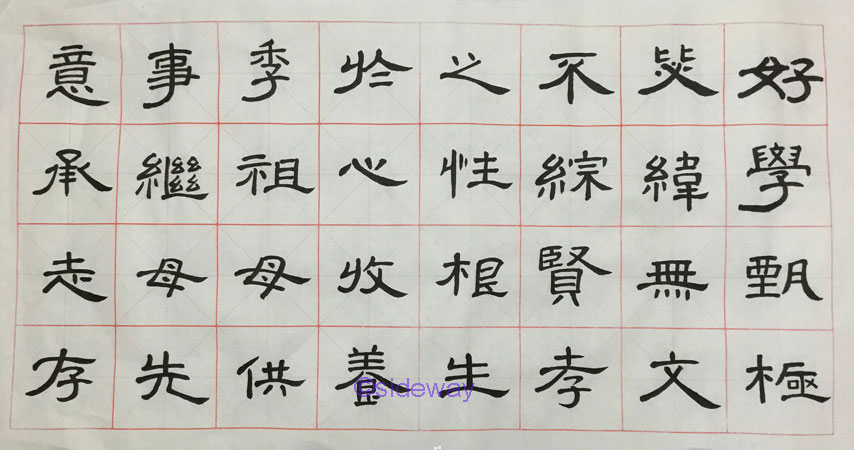 好學甄極
毖緯無文
不綜賢孝
之性根生
於心收養
季祖母供
事繼母先
意承志存
©sideway